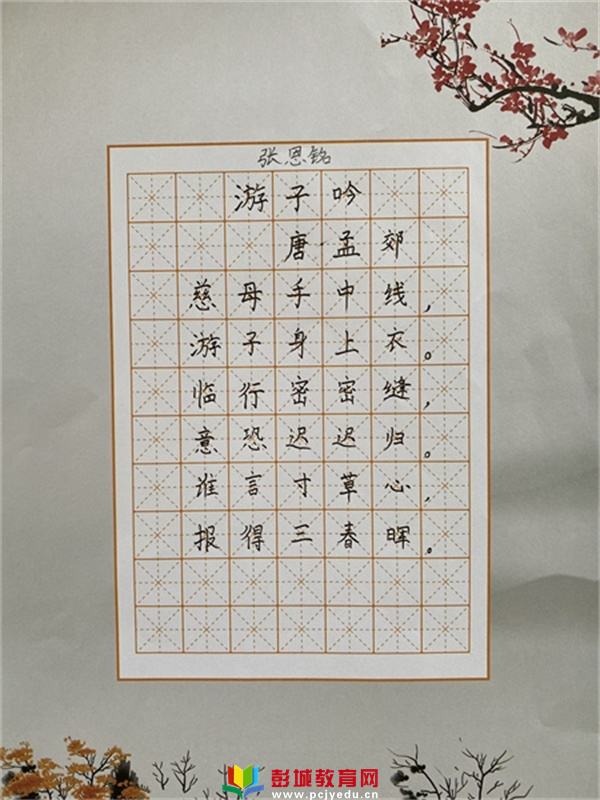 张恩铭
游子吟
唐·孟郊
慈母手中线，
游子身上衣。
临行密密缝，
意恐迟迟归。
谁言寸草心，
报得三春晖。
彭城教育网
www.pcjyedu.cn